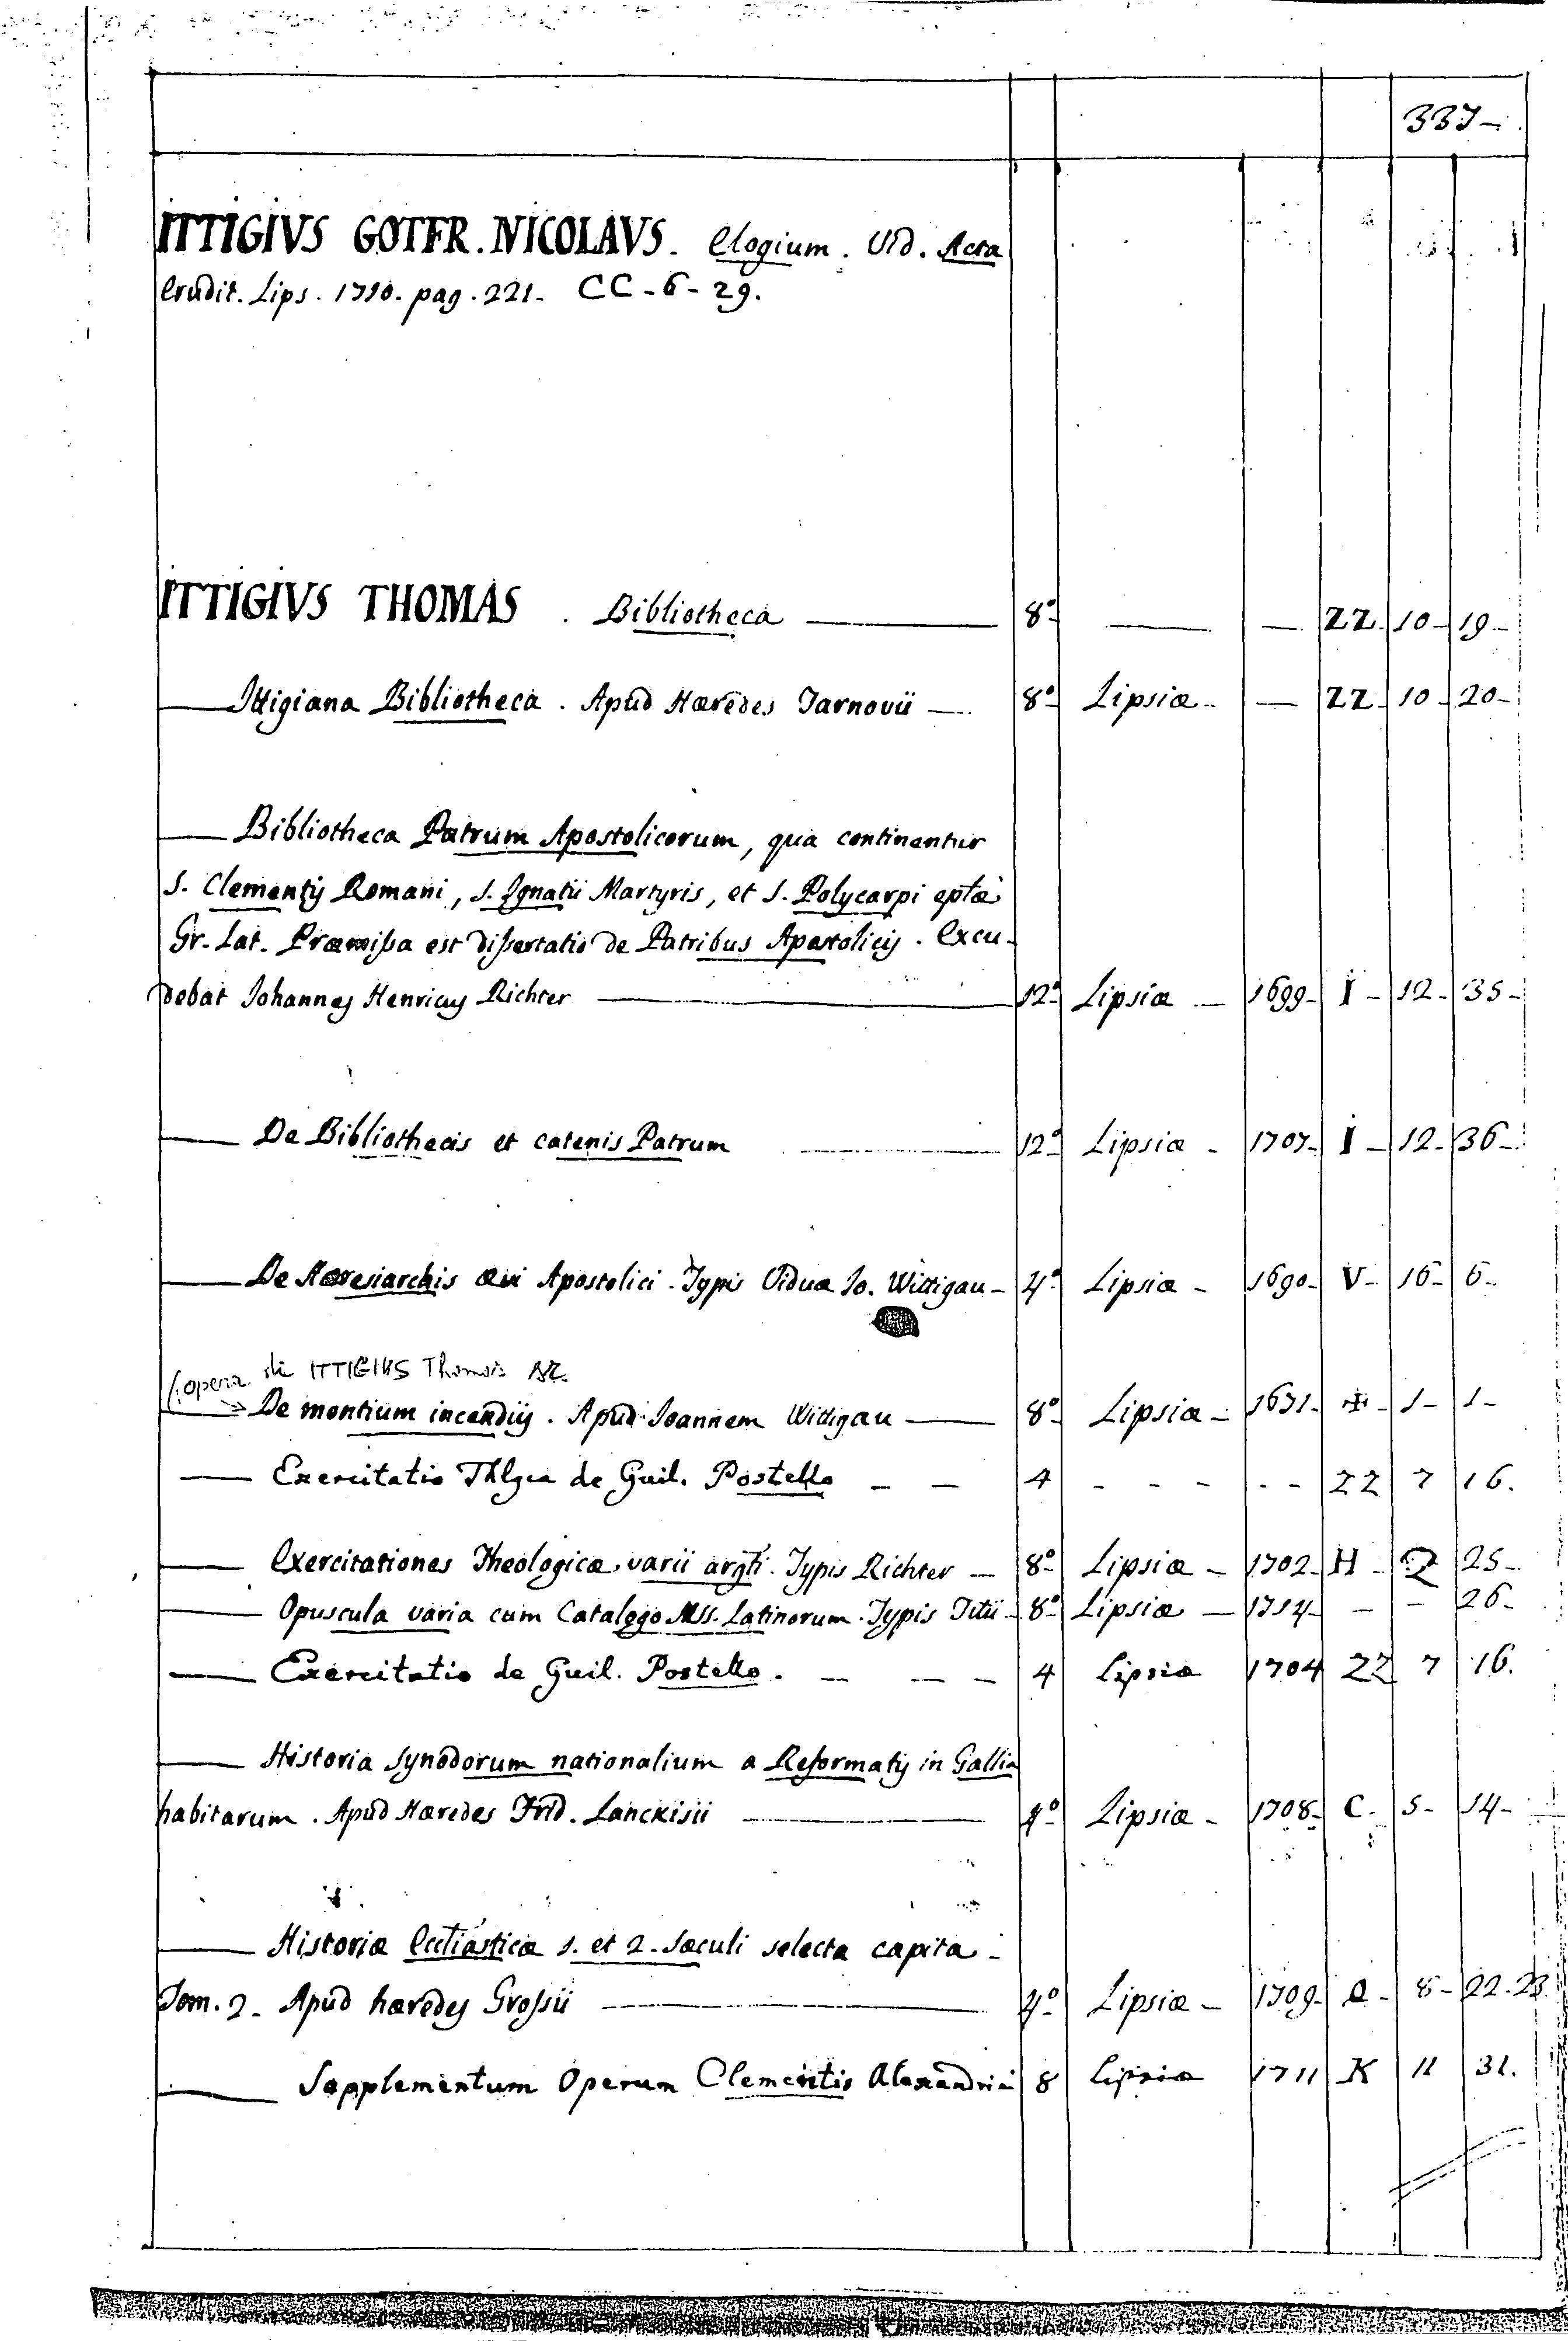 337-
ITTIGIVS GOTFR. NICOLAVS. Elogium. Vid. Acta
Erudit. Lips. 1710. pag. 221. CC-6-29.
ITTIGIVS THOMAS. Bibliotheca 8º — — ZZ. 10-19-
Ittigiana Bibliotheca. Apud Hæredes Tarnovii — 8º Lipsiæ — ZZ-10-20-
Bibliotheca Patrum Apostolicorum, qua continentur
S. Clementis Romani, S. Ignatii Martyris, et S. Polycarpi eptæ
Gr. Lat. Præmissa est dissertatio de Patribus Apostolicis. Excu-
debat Johannes Henricus Richter 12º Lipsiæ — 1699- I-12-35-
De Bibliothecis et catenis Patrum 12º Lipsiæ - 1707- I-12-36-
De Hæresiarchis ævi Apostolici. Typis Viduæ Jo. Wittigau- 4º Lipsiæ - 1690- V-16-6-
(opera di ITTIGIUS Thomas
De montium incendiis. Apud Joannem Wittigau 8º Lipsiæ - 1671- ✠-1-1-
Exercitatio Thlgca de Guil. Postello — — 4 - - - - - ZZ 7 16.
Exercitationes Theologicæ varii argti. Typis Richter — 8º Lipsiæ - 1702- H-2 25-
Opuscula varia cum Catalogo Mss. Latinorum. Typis Titii - 8º Lipsiæ — 1714- — - 26-
Exercitatio de Guil. Postello. — — — 4 Lipsiæ 1704 ZZ 7 16.
Historia Synodorum nationalium a Reformatis in Gallia
habitarum. Apud Hæredes Frid. Lanckisii 4º Lipsiæ - 1708- C-5-14-
Historiæ Ecclticæ 1. et 2. Sæculi selecta capita -
Tom. 2. Apud hæredes Grossii 4º Lipsiæ - 1709- Q-8-22.23.
Supplementum Operum Clementis Alexandrini 8 Lipsiæ 1711 K 11 31.